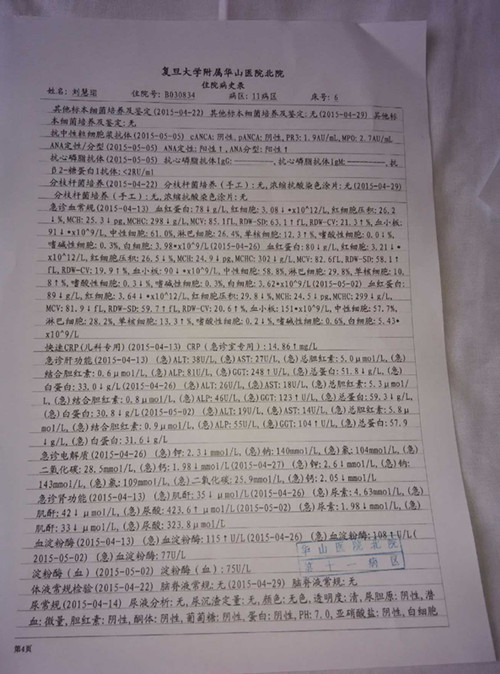 复旦大学附属华山医院北院
住院病史表
姓名: 刘慧 住院号: B030834 病区: 11病区 床号: 6
其他标本细菌培养及鉴定(2015-04-22) 其他标本细菌培养及鉴定:无(2015-04-29) 其他标
本细菌培养及鉴定:无
抗中性粒细胞浆抗体(2015-05-05) cANCA:阴性,pANCA:阴性,PR3:1.9AU/mL,MPO:2.7AU/mL
ANA定性/分型(2015-05-05) ANA定性:阳性↑,ANA分型:阳性↑
抗心磷脂抗体(2015-05-05) 抗心磷脂抗体IgG:----------,抗心磷脂抗体IgM:----------,抗
β2-糖蛋白1抗体:<2RU/ml
分枝杆菌培养(2015-04-22) 分枝杆菌培养(手工):无,浓缩抗酸染色涂片:无(2015-04-29)
分枝杆菌培养(手工):无,浓缩抗酸染色涂片:无
急诊血常规(2015-04-13) 血红蛋白:78↓g/L,红细胞:3.08↓*x10^12/L,红细胞压积:26.2
↓%,MCH:25.3↓pg,MCHC:298↓g/L,MCV:85.1fL,RDW-SD:63.1↑fL,RDW-CV:21.3↑%,血小板:
91↓*x10^9/L,中性细胞:61.0%,淋巴细胞:26.4%,单核细胞:12.3↑%,嗜酸性细胞:0.0↓%,
嗜碱性细胞:0.3%,白细胞:3.98*x10^9/L(2015-04-26) 血红蛋白:80↓g/L,红细胞:3.21↓*
x10^12/L,红细胞压积:26.5↓%,MCH:24.9↓pg,MCHC:302↓g/L,MCV:82.6fL,RDW-SD:58.1↑
fL,RDW-CV:19.9↑%,血小板:90↓*x10^9/L,中性细胞:58.8%,淋巴细胞:29.8%,单核细胞:10.
8↑%,嗜酸性细胞:0.3↓%,嗜碱性细胞:0.3%,白细胞:3.62*x10^9/L(2015-05-02) 血红蛋白:
89↓g/L,红细胞:3.64↓*x10^12/L,红细胞压积:29.8↓%,MCH:24.5↓pg,MCHC:299↓g/L,
MCV:81.9↓fL,RDW-SD:59.7↑fL,RDW-CV:20.6↑%,血小板:151*x10^9/L,中性细胞:57.7%,
淋巴细胞:28.2%,单核细胞:13.3↑%,嗜酸性细胞:0.2↓%,嗜碱性细胞:0.6%,白细胞:5.43*
x10^9/L
快速CRP(儿科专用)(2015-04-13) CRP(急诊室专用):14.86↑mg/L
急诊肝功能(2015-04-13) (急)ALT:38U/L,(急)AST:27U/L,(急)总胆红素:5.0μmol/L,(急)
结合胆红素:0.6μmol/L,(急)ALP:81U/L,(急)GGT:248↑U/L,(急)总蛋白:51.8↓g/L,(急)
白蛋白:33.0↓g/L(2015-04-26) (急)ALT:26U/L,(急)AST:18U/L,(急)总胆红素:5.3μmol/
L,(急)结合胆红素:0.8μmol/L,(急)ALP:46U/L,(急)GGT:123↑U/L,(急)总蛋白:59.3↓g/L,
(急)白蛋白:30.8↓g/L(2015-05-02) (急)ALT:19U/L,(急)AST:14U/L,(急)总胆红素:5.8μ
mol/L,(急)结合胆红素:0.9μmol/L,(急)ALP:55U/L,(急)GGT:104↑U/L,(急)总蛋白:57.9
↓g/L,(急)白蛋白:31.6↓g/L
急诊电解质(2015-04-26) (急)钾:2.3↓mmol/L,(急)钠:140mmol/L,(急)氯:104mmol/L,(急)
二氧化碳:28.5mmol/L,(急)钙:1.98↓mmol/L(2015-04-27) (急)钾:2.6↓mmol/L,(急)钠:
143mmol/L,(急)氯:109mmol/L,(急)二氧化碳:25.9mmol/L,(急)钙:2.05↓mmol/L
急诊肾功能(2015-04-13) (急)肌酐:35↓μmol/L(2015-04-26) (急)尿素:4.63mmol/L,(急)
肌酐:42↓μmol/L,(急)尿酸:423.6↑μmol/L(2015-05-02) (急)尿素:1.98↓mmol/L,(急)
肌酐:33↓μmol/L,(急)尿酸:323.8μmol/L
血淀粉酶(2015-04-13) (急)血淀粉酶:115↑U/L(2015-04-26) (急)血淀粉酶:108↑U/L(
2015-05-02) (急)血淀粉酶:77U/L
淀粉酶(血)(2015-05-02) 淀粉酶(血):75U/L
体液常规检验(2015-04-22) 脑脊液常规:无(2015-04-29) 脑脊液常规:无
尿常规(2015-04-14) 尿液分析:无,尿沉渣定量:无,颜色:无色,透明度:清,尿胆原:阴性,潜
血:微量,胆红素:阴性,酮体:阴性,葡萄糖:阴性,蛋白:阴性,PH:7.0,亚硝酸盐:阴性,白细胞
华山医院北院
第十一病区
第4页